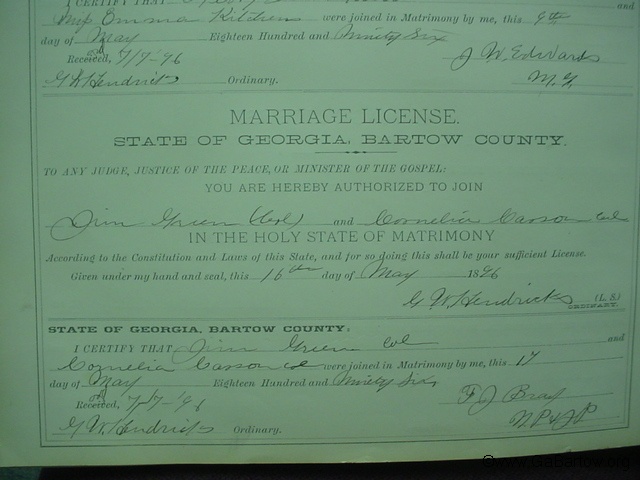 and
Miss Emma Kitchens were joined in Matrimony by me, this 9th
day of May Eighteen Hundred and Ninety Six
Received, 7/7-96 J W Edwards
G W Hendricks Ordinary. M. G.
MARRIAGE LICENSE.
STATE OF GEORGIA, BARTOW COUNTY.
TO ANY JUDGE, JUSTICE OF THE PEACE, OR MINISTER OF THE GOSPEL:
YOU ARE HEREBY AUTHORIZED TO JOIN
Jim Green (Col) and Cornelia Carson col
IN THE HOLY STATE OF MATRIMONY
According to the Constitution and Laws of this State, and for so doing this shall be your sufficient License.
Given under my hand and seal, this 16th day of May 1896
G W Hendricks (L. S.)
ORDINARY.
STATE OF GEORGIA, BARTOW COUNTY:
I CERTIFY THAT Jim Green Col and
Cornelia Carson col were joined in Matrimony by me, this 17
day of May Eighteen Hundred and Ninety Six
Received, 7/7-96 F J Bray
G W Hendricks Ordinary. N P & J P